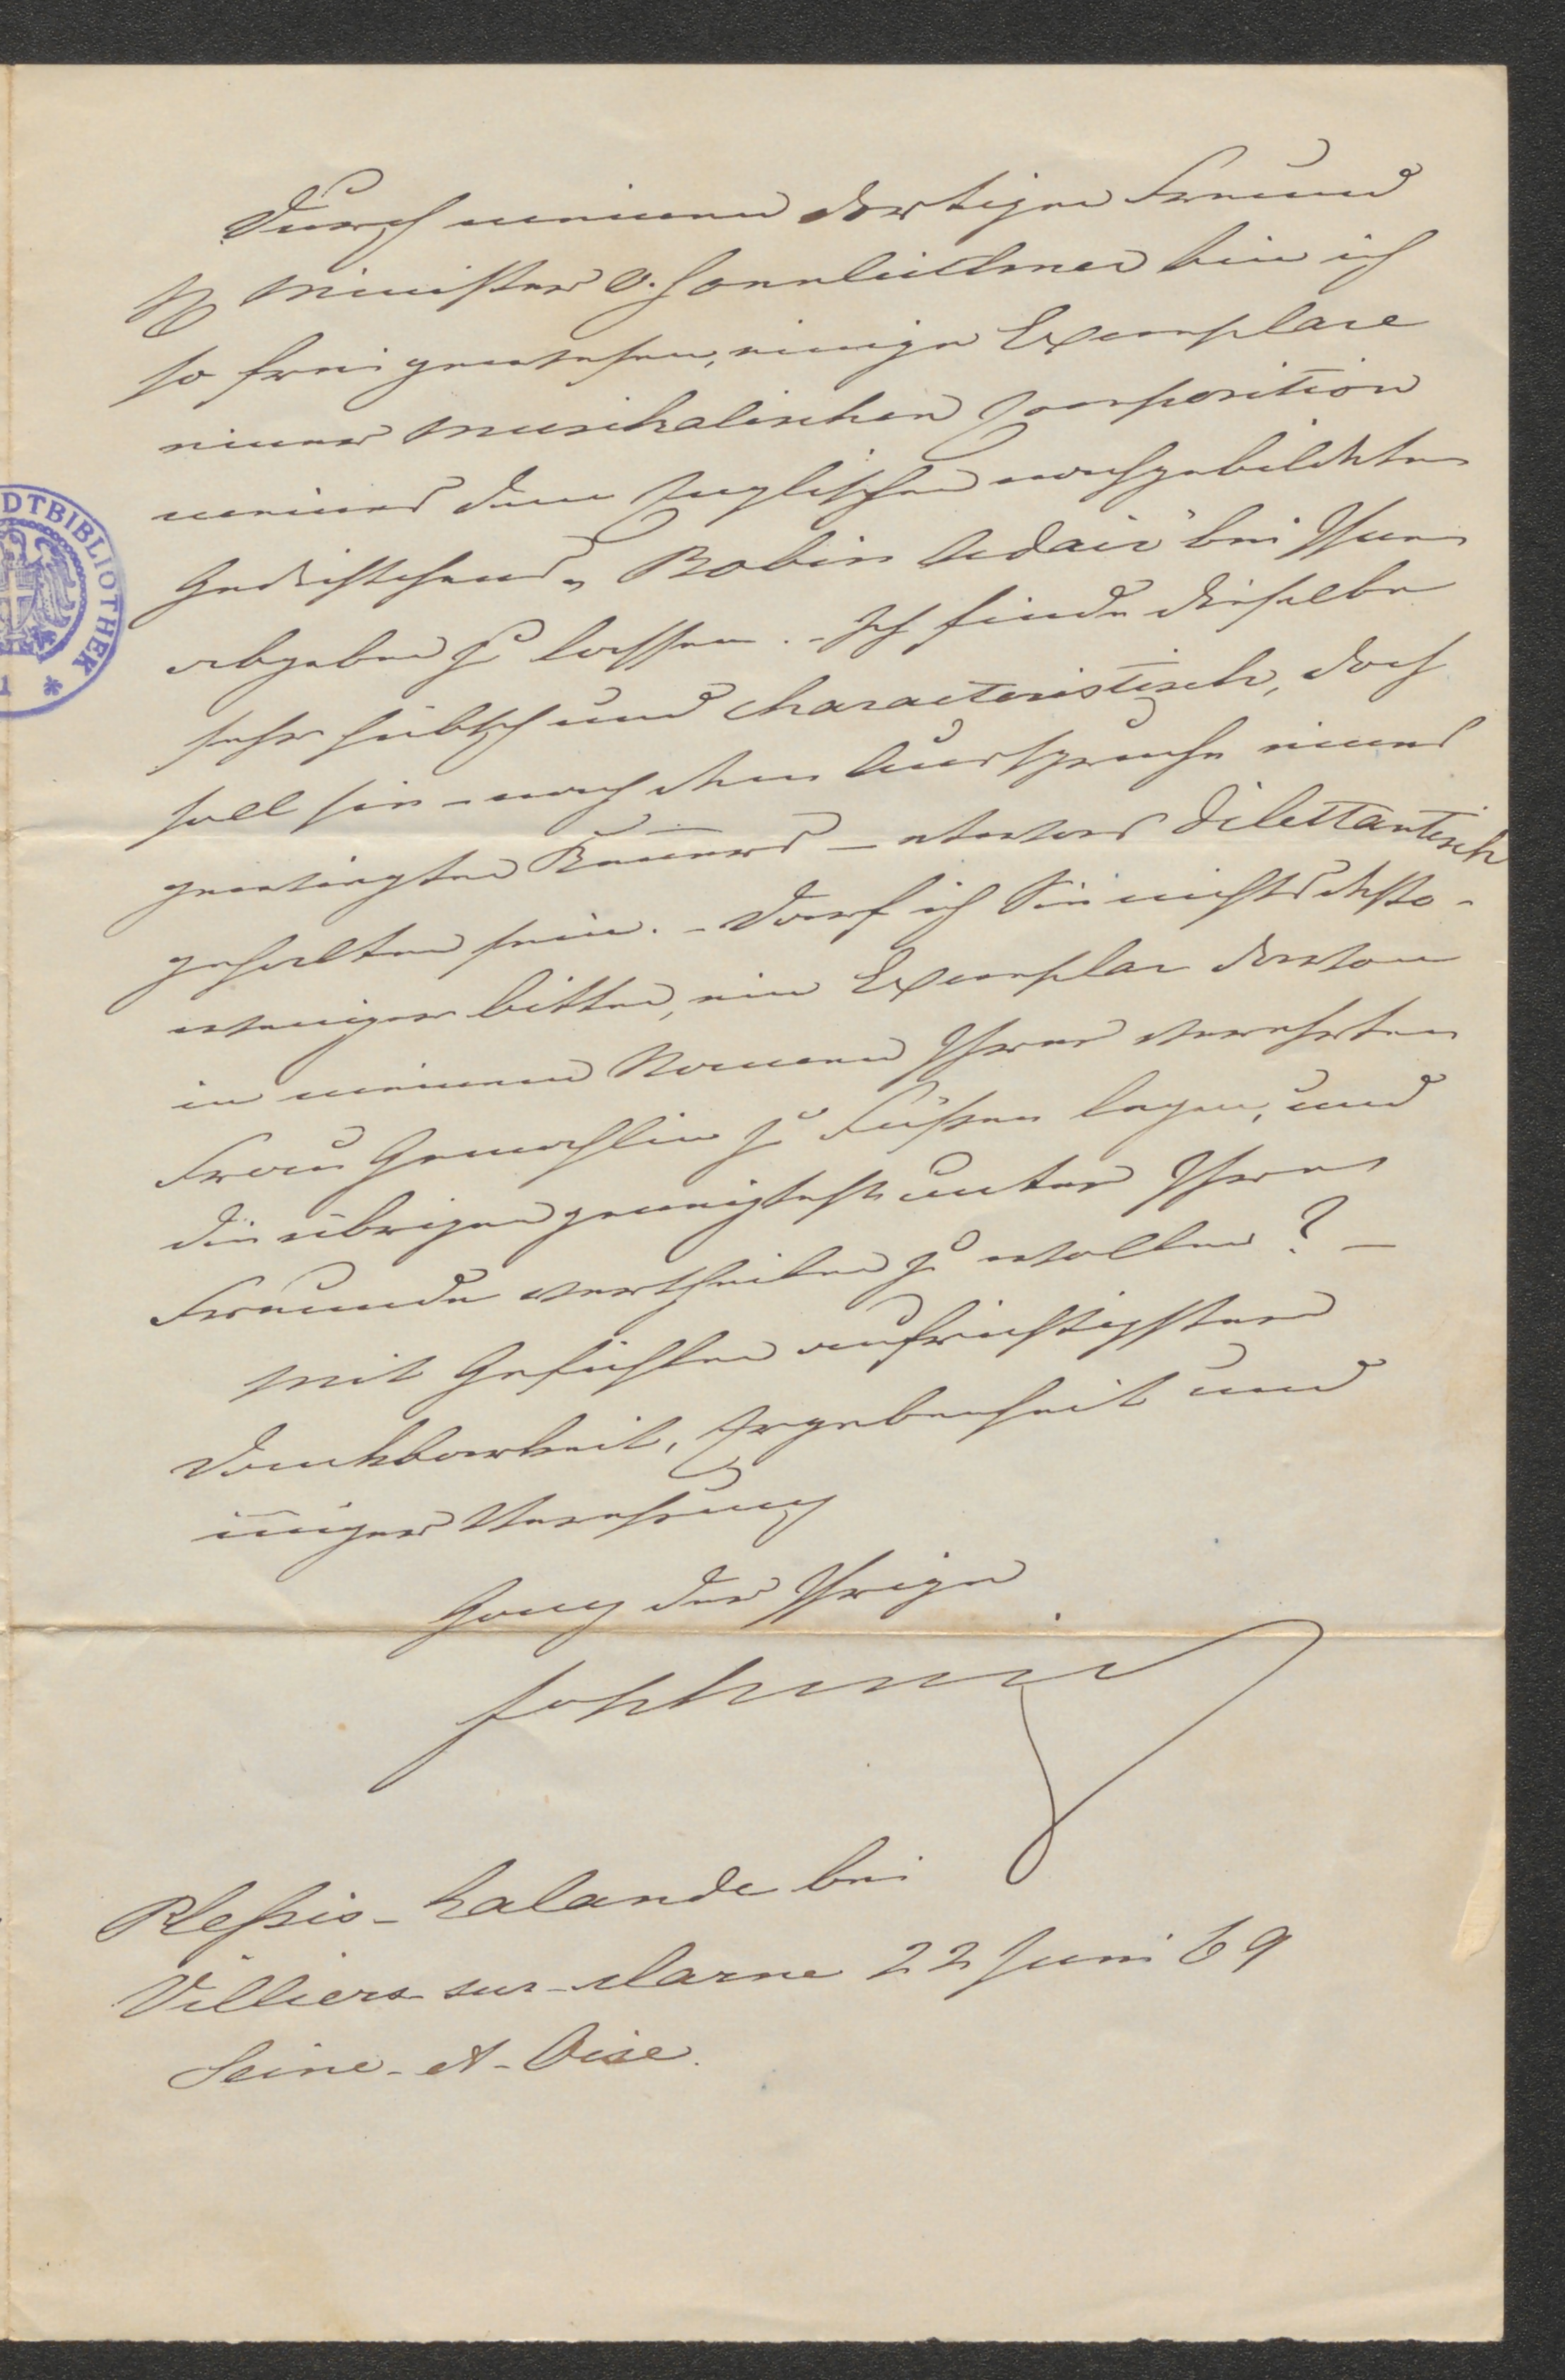 Durch meinen dortigen Freund
H Minister v. Sonnleithner bin ich
so frei gewesen, einige Exemplare
einer musikalischen Composition
meines dem Englischen nachgebildeten
Gedichtchens „Robin Adair" bei Ihnen
abgeben zu lassen. - Ich finde dieselbe
sehr hübsch und characteristisch, doch
soll sie - nach dem Ausspruche eines
gewiegten Kenners - etwas dilettantisch
gehalten sein. - Darf ich Sie nichtsdesto-
weniger bitten, ein Exemplar davon
in meinem Namen Ihrer verehrten
Frau Gemahlin zu Füßen legen, und
die übrigen geneigtest unter Ihre
Freunde vertheilen zu wollen? -
Mit Gefühlen aufrichtigster
Dankbarkeit, Ergebenheit und
inniger Verehrung
Ganz der Ihrige
Pleßis-Lalande bei
Villiers-sur-Marne 22 Juni 69
Seine-et-Oise.
DTBIBLIOTHEK *